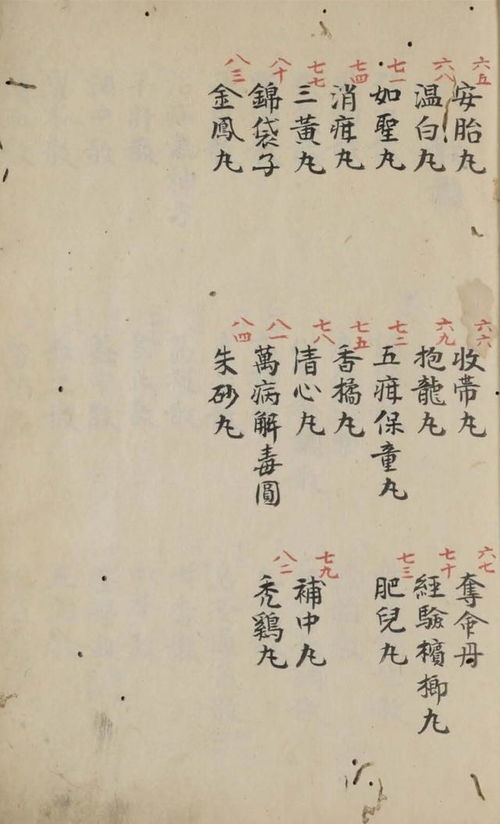 六五 安胎丸
六六 收帶丸
六七 奪命丹
六八 温白丸
六九 抱龍丸
七十 経驗檳榔丸
七一 如聖丸
七二 五疳保童丸
七三 肥兒丸
七四 消疳丸
七五 香橘丸
七七 三黃丸
七八 清心丸
七九 補中丸
八十 錦袋子
八一 萬病解毒圓
八二 禿鷄丸
八三 金鳳丸
八四 朱砂丸